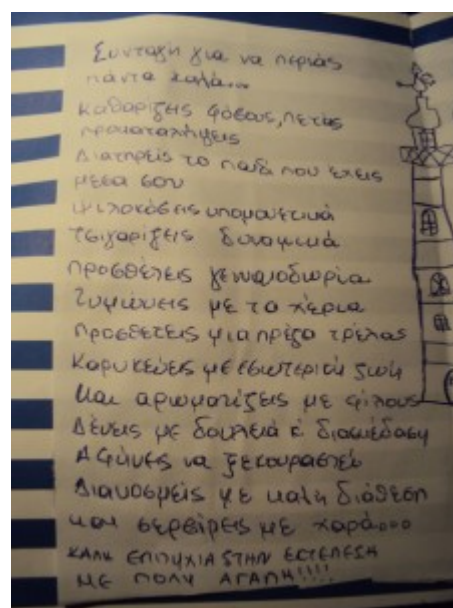 Συνταγή για να περνάς
πάντα καλά...
Καθαρίζεις φόβους, πετάς
προκαταλήψεις
Διατηρείς το παιδί που έχεις
μέσα σου
Ψιλοκόβεις υπομονετικά
τσιγαρίζεις δυναμικά
προσθέτεις γενναιοδωρία
Ζυμώνεις με τα χέρια
Προσθέτεις μια πρέζα τρέλας
Καρυκεύεις με εσωτερική ζωή
Και αρωματίζεις με φίλους
Δένεις με δουλειά κ διασκέδαση
Αφήνεις να ξεκουραστεί
Διανθίζεις με καλή διάθεση
και σερβίρεις με χαρά....
ΚΑΛΗ ΕΠΙΤΥΧΙΑ ΣΤΗΝ ΕΚΤΕΛΕΣΗ
ΜΕ ΠΟΛΥ ΑΓΑΠΗ!!!!